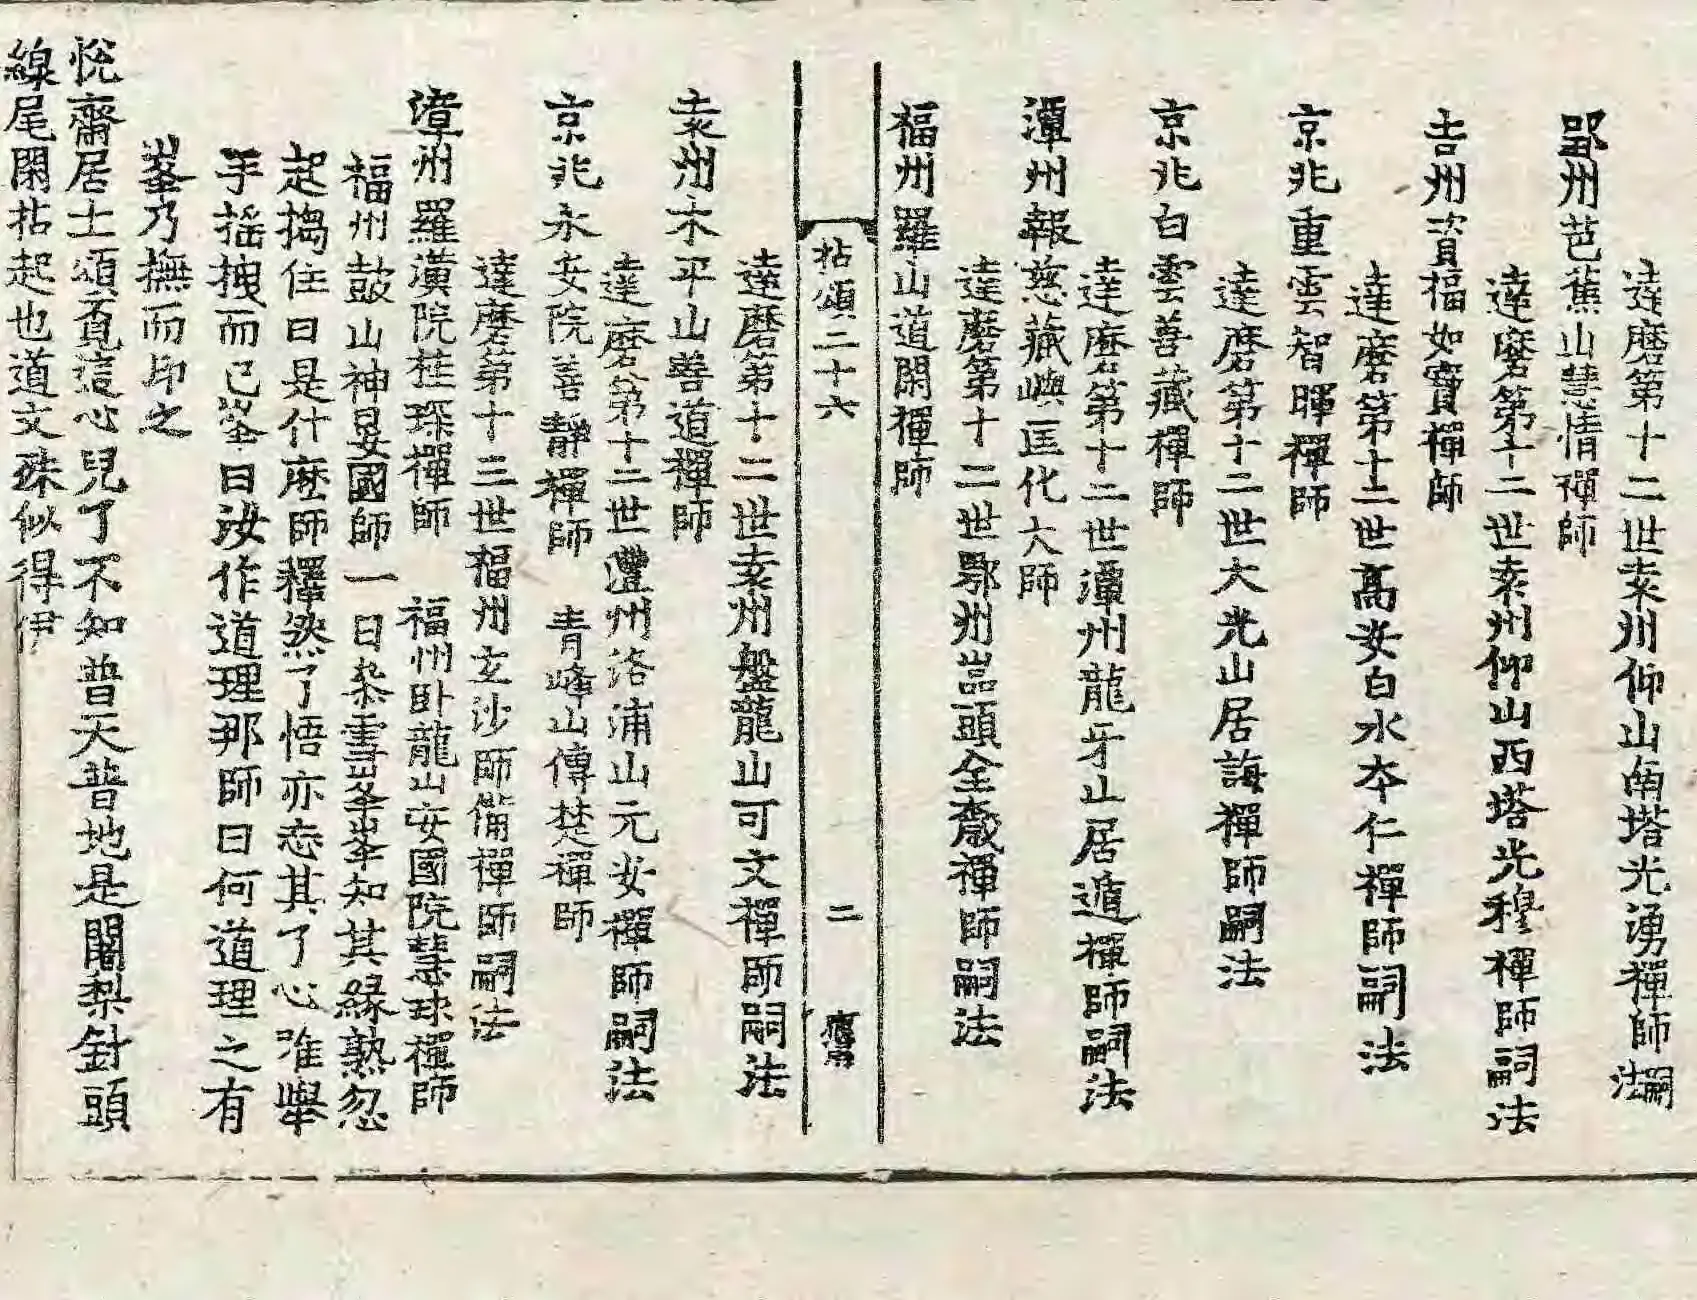 達磨第十二世袁州仰山南塔光湧禪師嗣法
郢州芭蕉山慧情禪師
達磨第十二世袁州仰山西塔光穆禪師嗣法
吉州資福如寶禪師
達磨第十二世高安白水本仁禪師嗣法
京兆重雲智暉禪師
達磨第十二世大光山居誨禪師嗣法
京兆白雲善藏禪師
達磨第十二世潭州龍牙山居遁禪師嗣法
潭州報慈藏嶼匡化大師
達磨第十二世鄂州嵓頭全奯禪師嗣法
福州羅山道閑禪師
拈頌二十六 二
達磨第十二世袁州盤龍山可文禪師嗣法
袁州木平山善道禪師
達磨第十二世澧州洛浦山元安禪師嗣法
京兆永安院善靜禪師 青峰山傳楚禪師
達磨第十三世福州玄沙師備禪師嗣法
漳州羅漢院桂琛禪師 福州卧龍山安國院慧球禪師
福州鼓山神晏國師一日叅雪峯峯知其緣熟忽
起搊住曰是什麽師釋然了悟亦忘其了心唯舉
手搖拽而已峯曰汝作道理那師曰何道理之有
峯乃撫而印之
悅齋居士頌覔這心兒了不知普天普地是闍梨針頭
線尾閑拈起也道文殊似得伊